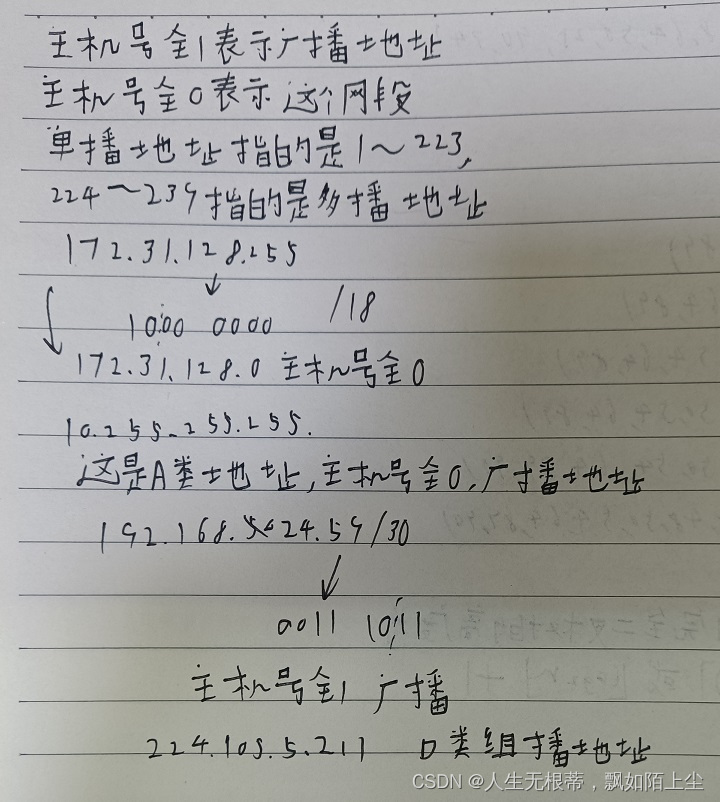 主机号全1表示广播地址
主机号全0表示这个网段
单播地址指的是1～223,
224～239指的是多播地址
172.31.128.255
/18
1000 0000
172.31.128.0 主机号全0
10.255.255.255.
这是A类地址,主机号全0,广播地址
192.168.24.59/30
0011 1011
主机号全1 广播
224.105.5.211 D类组播地址
CSDN @人生无根蒂，飘如陌上尘